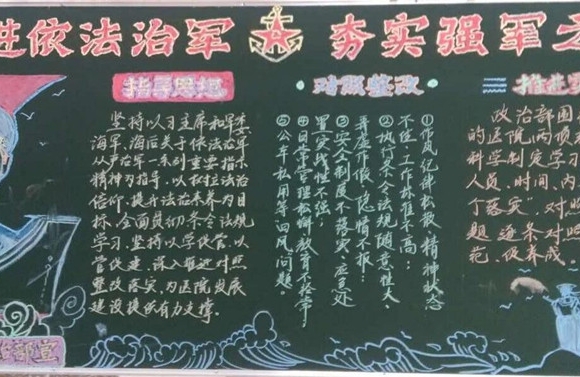 进依法治军 夯实强军之
指导思想
坚持以习主席和军委
海军、海后关于依法治军
从严治军一系列重要指示
精神为指导，以树立法治
信仰、提升法治素养为目
标，全面贯彻条令法规
学习，坚持以学促管、以
管促建，深入推进对照
整改落实，为医院发展
建设提供有力支撑。
对照整改
①作风纪律松散、精神状态
不佳、工作标准不高；
②执行条令法规随意性大、
弄虚作假、隐情不报；
③安全制度不落实、应急处
置实战性不强；
④日常管理松懈教育不经常；
⑤公车私用等四风问题。
推进
政治部围
的医院两项
科学制定学习
人员、时间、内
个落实”，对照
题 逐条对照
范，促养成。
治部宣